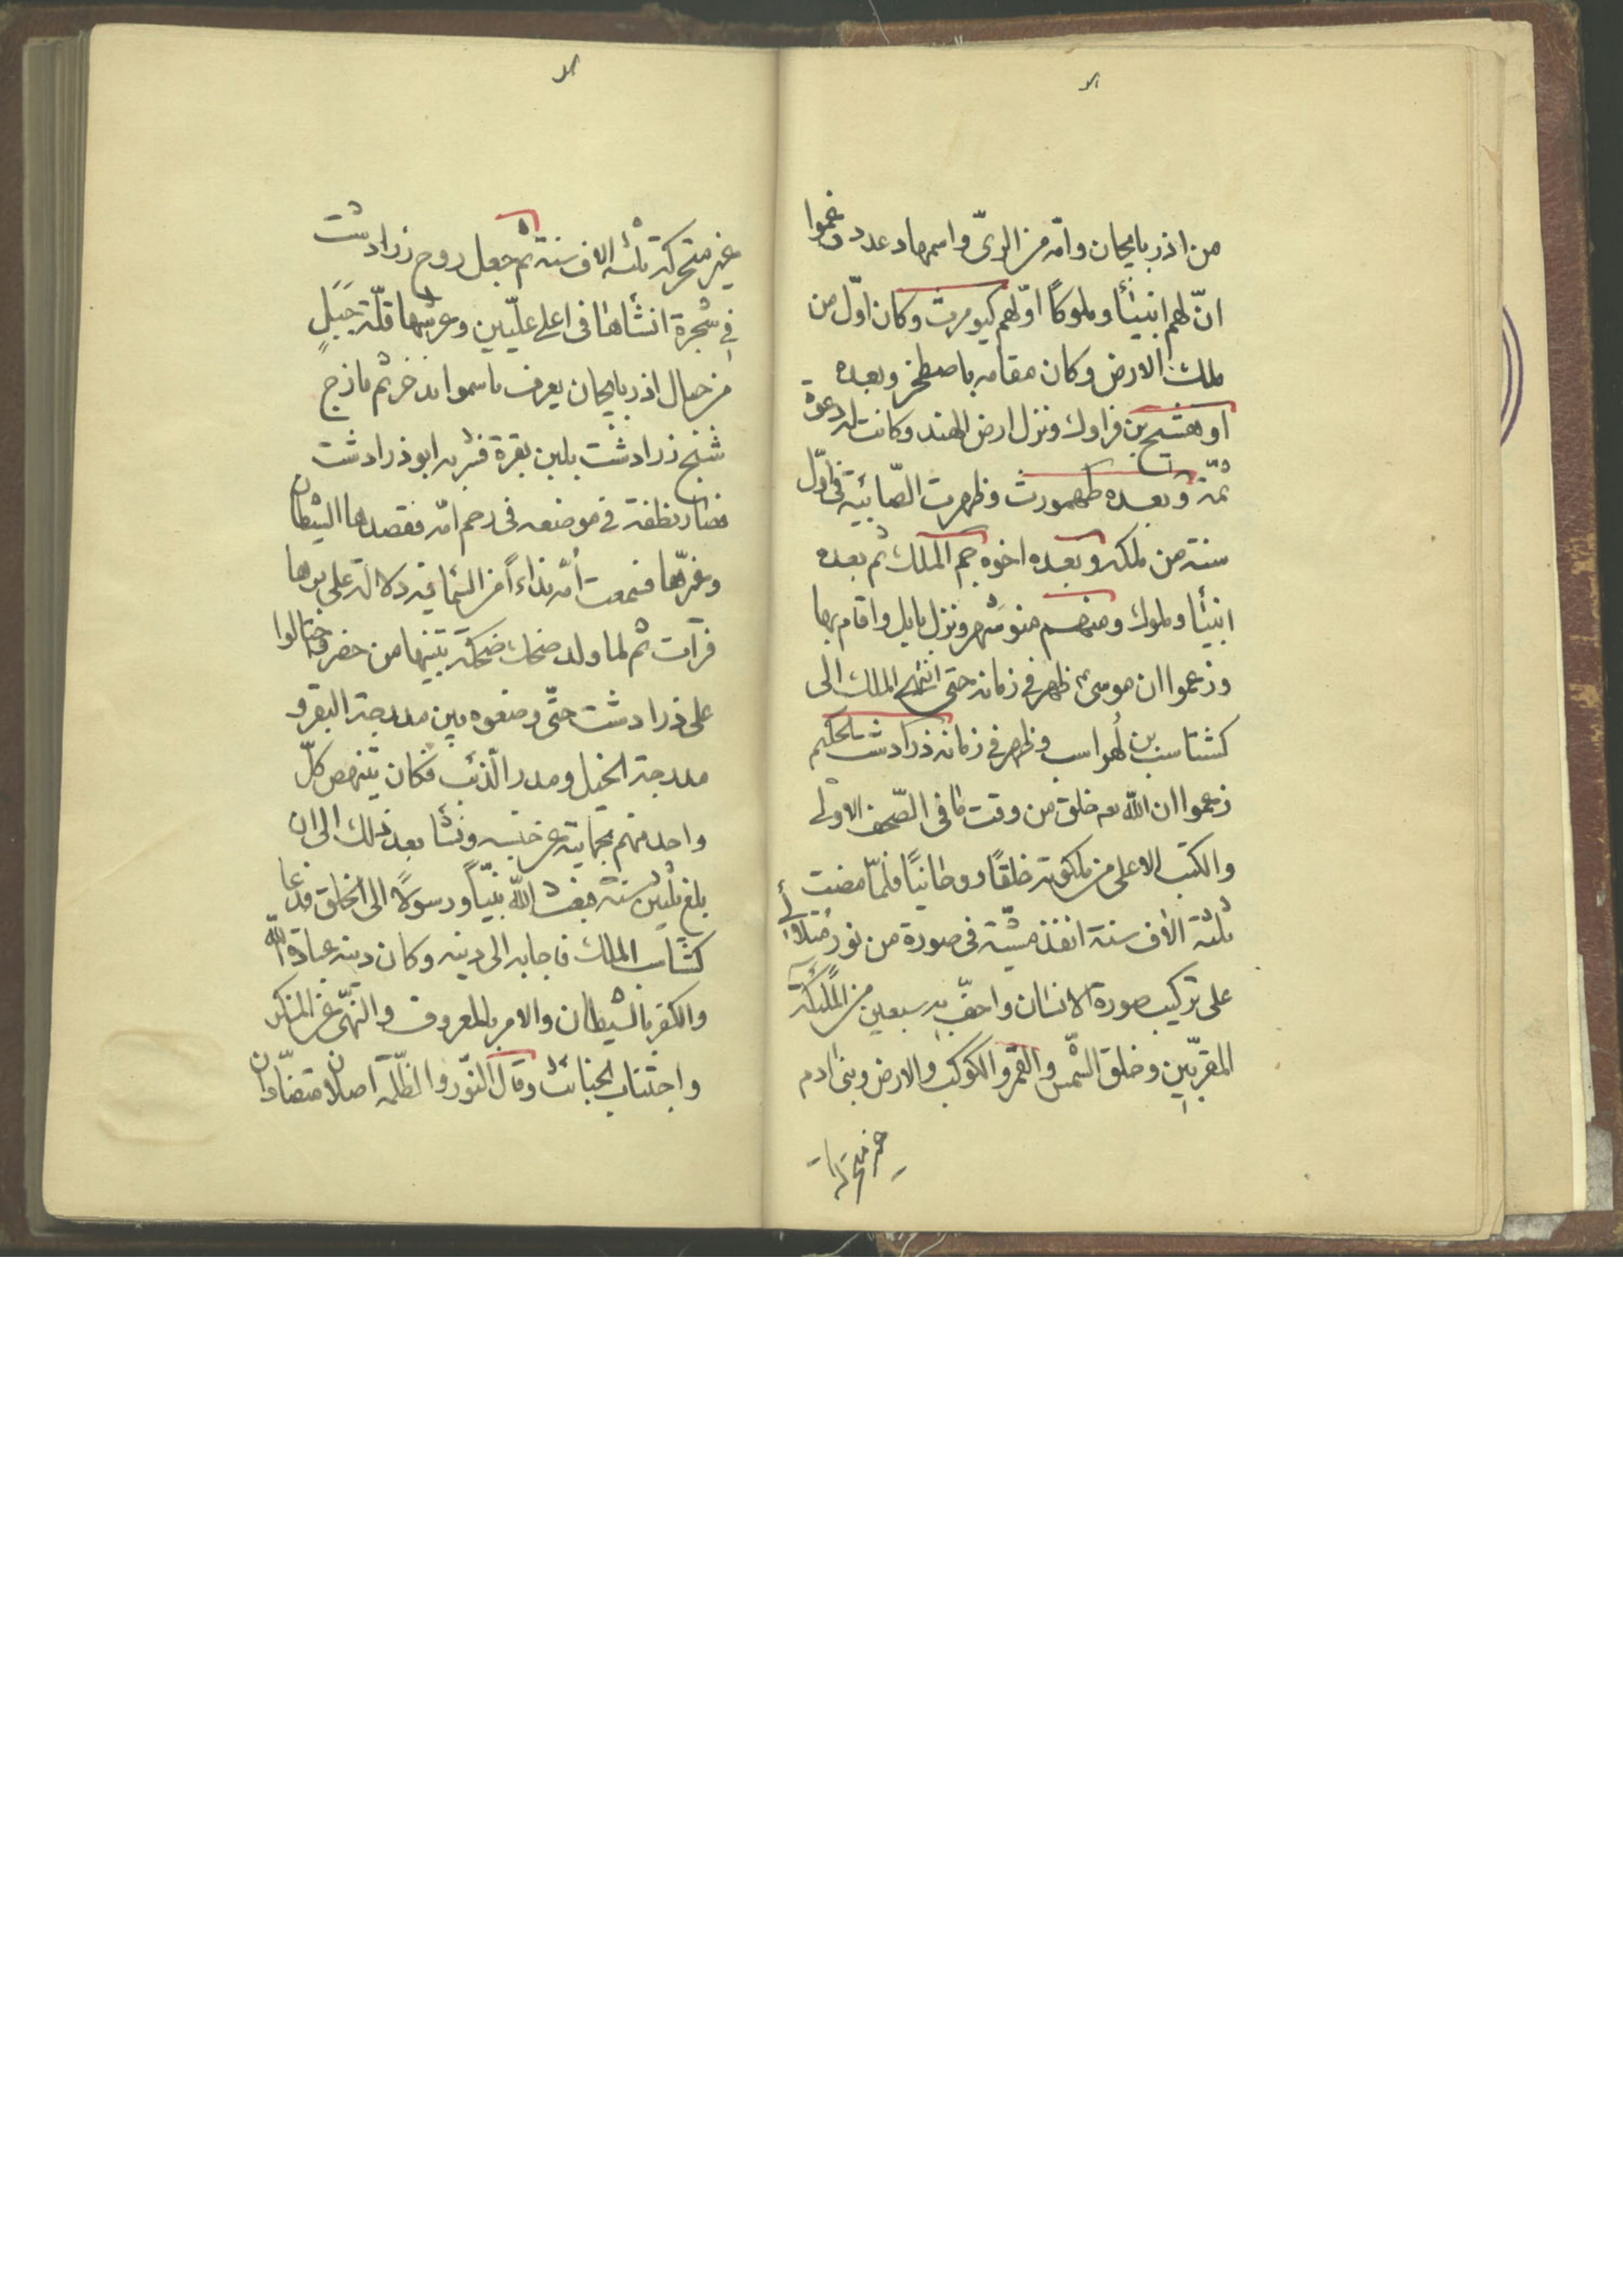 من اذربايجان وامّه من الرىّ واسمها دعدو زعموا
انّ لهم انبيآء وملوكاً اوّلهم كيومرث وكان اوّل من
ملك الارض وكان مقامه باصطخر وبعده
اوهشنج بن فراوك ونزل ارض الهند وكانت له دعوة
ثمّة وبعده طهمورث وظهرت الصّابئية فى اوّل
سنة من ملكه وبعده اخوه جم الملك ثم بعده
انبيآء وملوك ومنهم منوشهر ونزل بابل واقام بها
وزعموا ان موسىٰ ظهر فى زمانه حتى انتهى الملك الى
كشتاسب بن لهراسب وظهر فى زمانه زرادشت الحكيم
زعموا ان الله خلق من وقت ما فى الصّحف الاولى
والكتب الاعلى من ملكوته خلقاً روحانيّاً فلمّا مضت
ثلثة الاف سنة انفذ مشيّته فى صورة من نور متلألئ
على تركيب صورة الانسان واحفّ به سبعين من الملئكة
المقرّبين وخلق الشّمس والقمر والكوكب والارض وبنى ادم
غير متحركة
غير متحركة ثلثة الاف سنة ثم جعل روح زرادشت
فى شجرة انشأها فى اعلى علّيين وغرسها قلّة جَبَلٍ
من جبال اذربايجان يعرف باسمو ثم مازج
شبح زرادشت بلبن بقرة فشربه ابو زرادشت
فصار نطفة فى موضعه فى رحم امّه فقصدها الشيطان
وغيّرها فسمعت أمّه نداءاً من السّما فيه دلالة على بروها
فرأت ثم لما ولد ضحك ضحكة تبيّنها من حضر واحتالوا
على زرادشت حتّى وضعوه بين مدرجة البقر و
مدرجة الخيل ومدر الذئب فكان ينهض كلّ
واحد منهم بحماية عن جنسه ونشأ بعد ذلك الى ان
بلغ ثلثين سنة فبعث الله نبيّاً ورسولاً الى الخلق فدعا
كشتاسب الملك فاجابه الى دينه وكان دينه عبادة الله
والكفر بالشيطان والامر بالمعروف والنّهى عن المنكر
واجتناب الخبائث وقال النّور والظّلمة اصلان متضادّان